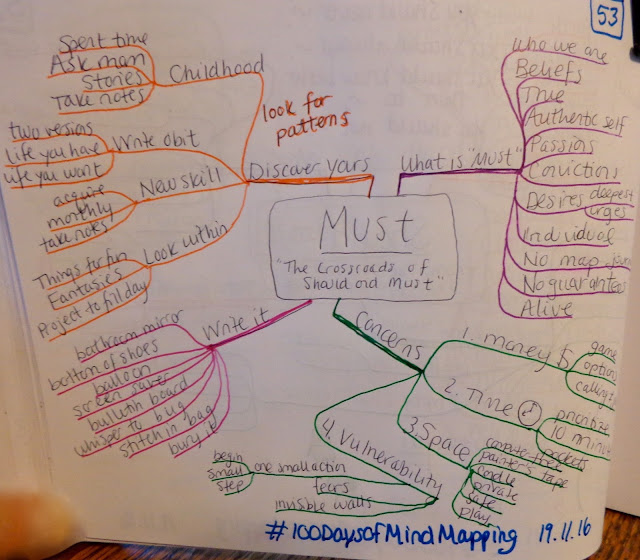 53
Must
"The Crossroads of
Should and Must"
What is "Must"
Who we are
Beliefs
True
Authentic self
Passions
Convictions
Desires deepest
urges
Individual
No map
No guarantees
Alive
Discover yours
look for
patterns
Childhood
Spent time
Ask mom
Stories
Take notes
Write obit
two versions
life you have
life you want
New skill
acquire
monthly
take notes
Look within
Things for fun
Fantasies
Project to fill day
Write it
bathroom mirror
bottom of shoes
balloon
screen saver
bulletin board
whisper to bug
stitch in bag
bury it
Concerns
1. money $
game
option
2. Time
prioritize
10 minute
pockets
3. Space
painter's tape
private
safe
play
4. Vulnerability
one small action
begin
small
step
fears
invisible walls
#100DaysofMindMapping 19.11.16